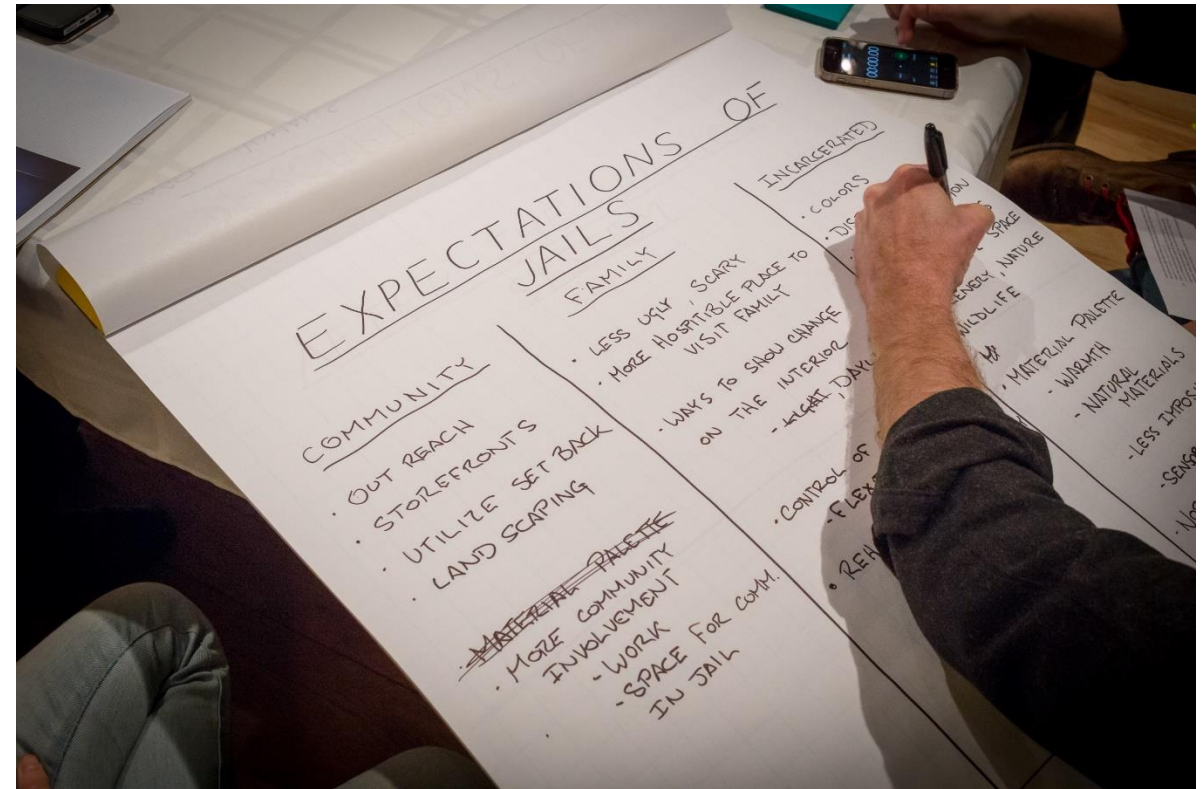 EXPECTATIONS OF
JAILS
COMMUNITY
· OUT REACH
· STOREFRONTS
· UTILIZE SET BACK
· LAND SCAPING
· MATERIAL PALETTE
· MORE COMMUNITY
INVOLVEMENT
- WORK
- SPACE FOR COMM.
IN JAIL
FAMILY
· LESS UGLY, SCARY
· MORE HOSPITIBLE PLACE TO
VISIT FAMILY
· WAYS TO SHOW CHANGE
ON THE INTERIOR
- LIGHT,
· CONTROL OF
INCARCERATED
· COLORS
SPACE
NATURE
WILDLIFE
· MATERIAL PALETTE
- WARMTH
- NATURAL
MATERIALS
- LESS
00:00.00